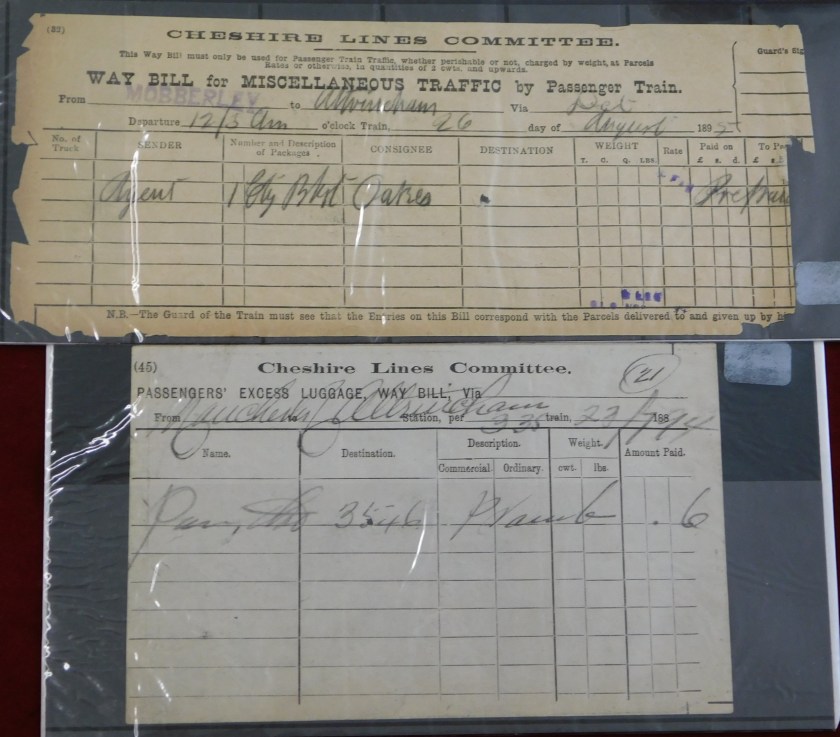 (32)
CHESHIRE LINES COMMITTEE.
This Way Bill must only be used for Passenger Train Traffic, whether perishable or not, charged by weight, at Parcels
Rates or otherwise, in quantities of 2 cwts. and upwards.
Guard's Sig
WAY BILL for MISCELLANEOUS TRAFFIC by Passenger Train.
From MOBBERLEY to Altrincham Via
Departure 12/5 am o'clock Train, 26 day of August 1895
No. of Truck SENDER Number and Description of Packages. CONSIGNEE DESTINATION WEIGHT Rate Paid on To Pa
T. C. Q. LBS. £ s. d. £ s.
Agent 1 Oakes Prepaid
N.B.—The Guard of the Train must see that the Entries on this Bill correspond with the Parcels delivered to and given up by h
(45) Cheshire Lines Committee. 21
PASSENGERS' EXCESS LUGGAGE, WAY BILL, Via
From Manchester to Altrincham Station, per 335 train, 23/7/94 188
Name. Destination. Description. Weight. Amount Paid.
Commercial Ordinary. cwt. lbs.
3546 Pramb . 6